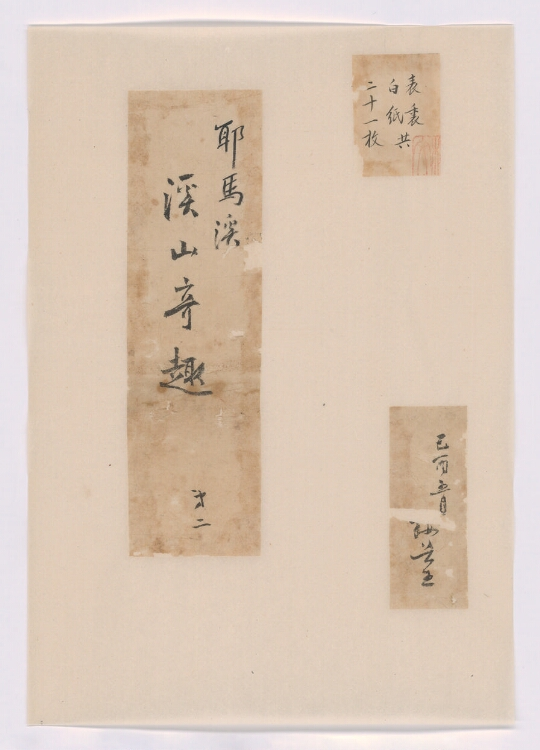 表裏共
白紙
二十一枚
耶馬溪
溪山奇趣
第二
己酉五月